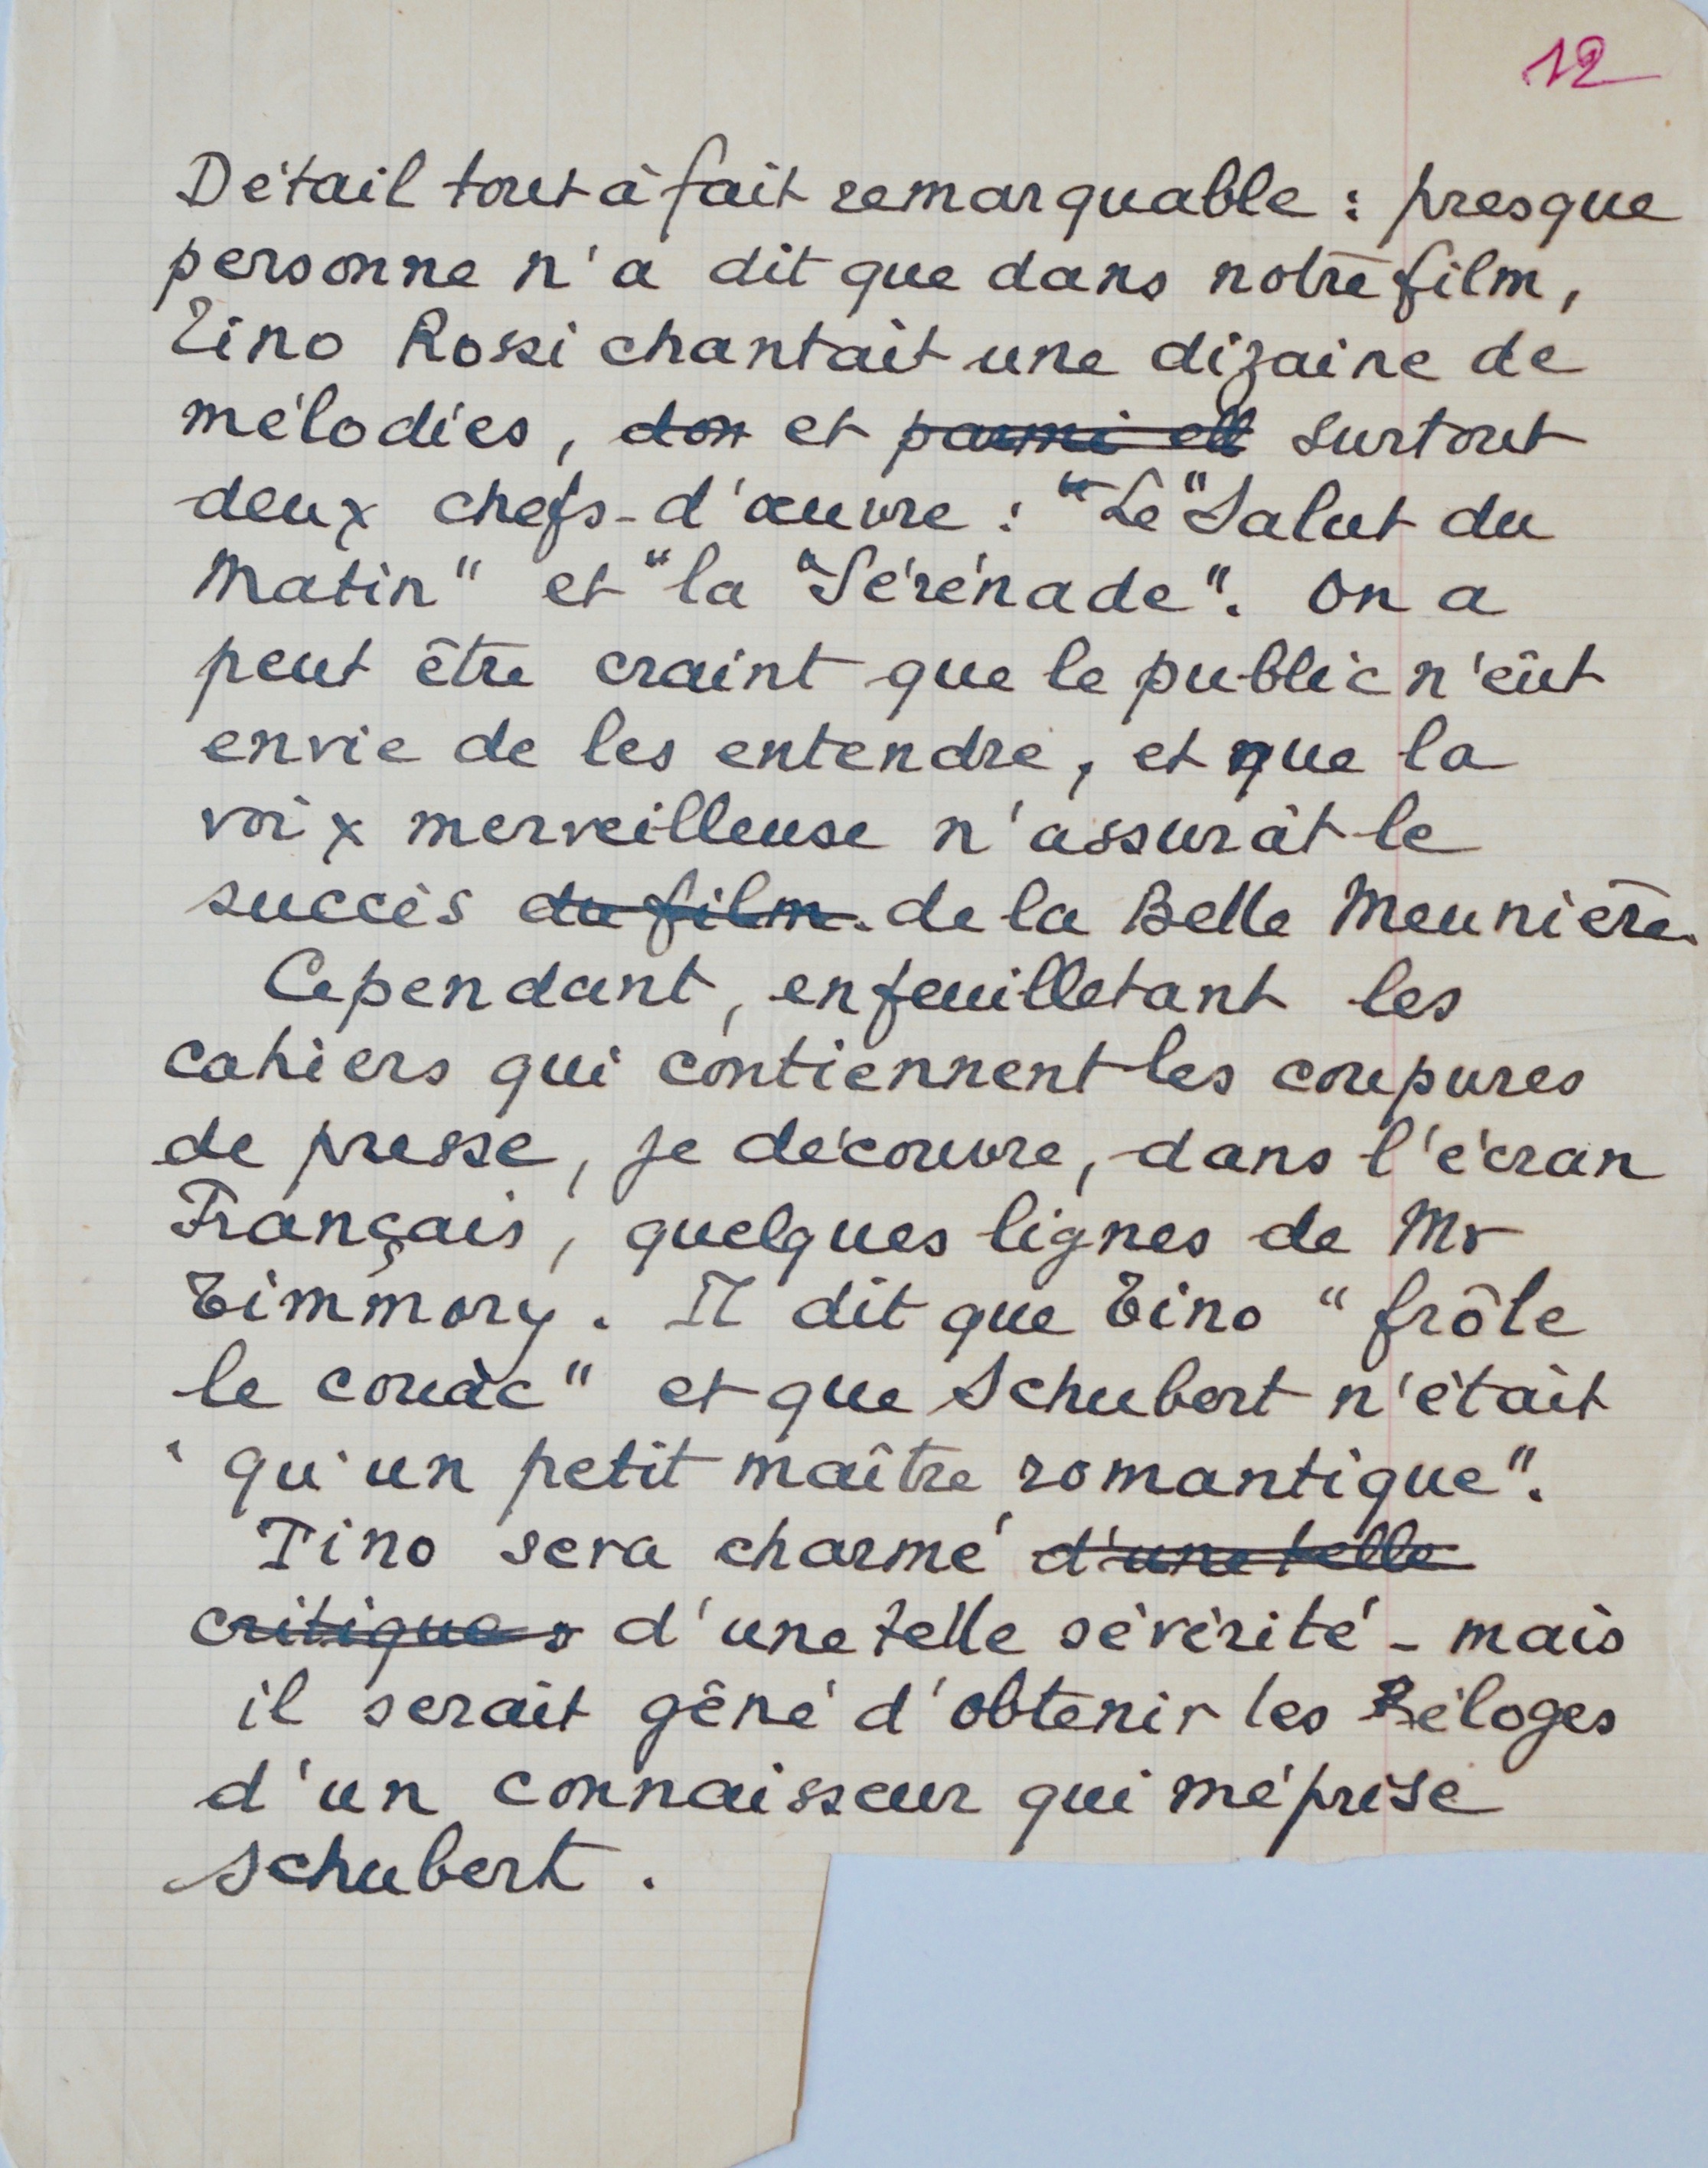 12
Détail tout à fait remarquable : presque
personne n'a dit que dans notre film,
Tino Rossi chantait une dizaine de
mélodies, don et parmi ell surtout
deux chefs-d'œuvre : "Le "Salut du
Matin" et "la "Sérénade". On a
peut être craint que le public n'eût
envie de les entendre, et que la
voix merveilleuse n'assurât le
succès du film. de la Belle Meunière.
Cependant, en feuilletant les
cahiers qui contiennent les coupures
de presse, je découvre, dans l'écran
Français, quelques lignes de Mr
Timmory. Il dit que Tino "frôle
le couac" et que Schubert n'était
"qu'un petit maître romantique".
Tino sera charmé d'une telle
critique d'une telle sévérité - mais
il serait gêné d'obtenir les éloges
d'un connaisseur qui méprise
Schubert.